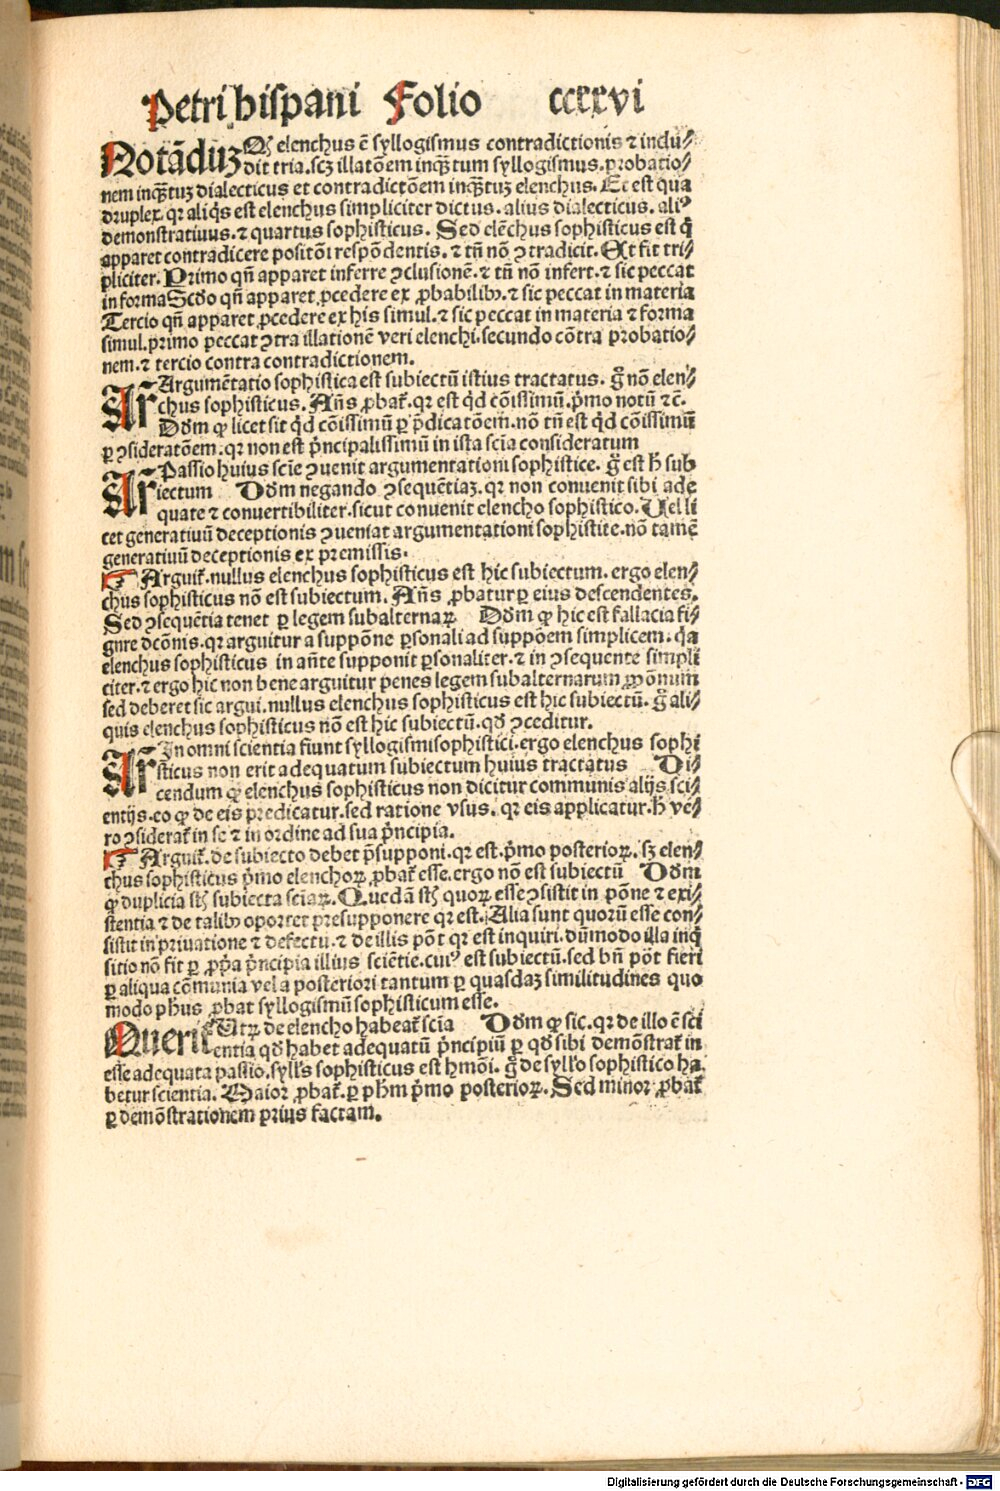 Petri hispani Folio ccxxvi
Notāduꝫ Qꝫ elenchus ē syllogismus contradictionis ⁊ inclu⸗
dit tria.scꝫ illatōem inqꝫtum syllogismus.probatio⸗
nem inqꝫtuꝫ dialecticus et contradictōem inqꝫtuꝫ elenchus. Et est qua
druplex. qꝛ aliq̄s est elenchus simpliciter dictus. alius dialecticus. aliꝰ
demonstratiuus.⁊ quartus sophisticus. Sed elēchus sophisticus est q̄
apparet contradicere positōi respōdentis.⁊ tn̄ nō ꝯtradicit. Et fit tri⸗
pliciter. Primo qn̄ apparet inferre ꝯclusionē.⁊ tn̄ nō infert.⁊ sic peccat
in forma Scd̄o qn̄ apparet ꝓcedere ex ꝓbabilibꝫ.⁊ sic peccat in materia
Tercio qn̄ apparet ꝓcedere ex his simul.⁊ sic peccat in materia ⁊ forma
simul.primo peccat ꝯtra illationē veri elenchi.secundo cōtra probatio⸗
nem.⁊ tercio contra contradictionem.
Ar̄ Argumētatio sophistica est subiectū istius tractatus. gͦ nō elen⸗
chus sophisticus. Añs ꝓbat̄. qꝛ est qd̄ cōissimū. p̄mo notū ⁊c̄.
Dōm ꝙ licet sit qd̄ cōissimū ꝑ p̄dicatōem.nō tn̄ est qd̄ cōissimū
ꝑ ꝯsideratōem.qꝛ non est p̄ncipalissimū in ista scīa consideratum
Ar̄ Passio huius scīe ꝯuenit argumentationi sophistice. gͦ est h̄ sub
iectum Dōm negando ꝯsequētiaꝫ.qꝛ non conuenit sibi ade
quate ⁊ conuertibiliter.sicut conuenit elencho sophistico. Vel li
cet generatiuū deceptionis ꝯueniat argumentationi sophistice.nō tamē
generatiuū deceptionis ex premissis.
Arguit̄.nullus elenchus sophisticus est hic subiectum. ergo elen⸗
chus sophisticus nō est subiectum. Añs ꝓbatur ꝑ eius descendentes.
Sed ꝯsequētia tenet ꝑ legem subalternaꝝ Dōm ꝙ hic est fallacia fi⸗
gure dcōnis.qꝛ arguitur a suppōne ꝑsonali ad suppōem simplicem. q̄a
elenchus sophisticus in añte supponit ꝑsonaliter.⁊ in ꝯsequente simpli
citer.⁊ ergo hic non bene arguitur penes legem subalternarum
sed deberet sic argui.nullus elenchus sophisticus est hic subiectū. gͦ ali⸗
quis elenchus sophisticus nō est hic subiectū.qd̄ ꝯceditur.
Ar̄ In omni scientia fiunt syllogismi sophistici.ergo elenchus sophi
sticus non erit adequatum subiectum huius tractatus Di⸗
cendum ꝙ elenchus sophisticus non dicitur communis alijs sci⸗
entijs.eo ꝙ de eis predicatur.sed ratione vsus. qꝛ eis applicatur. h̄ ve⸗
ro ꝯsiderat̄ in se ⁊ in ordine ad sua p̄ncipia.
Arguit̄.de subiecto debet p̄supponi.qꝛ est.p̄mo posterioꝝ. sꝫ elen⸗
chus sophisticus p̄mo elenchoꝝ ꝓbat̄ esse.ergo nō est subiectū Dōm
ꝙ duplicia st̄ subiecta scīaꝝ. Quedā st̄ quoꝝ esse ꝯsistit in pōne ⁊ exi⸗
stentia ⁊ de talibꝫ oportet presupponere qꝛ est. Alia sunt quorū esse con⸗
sistit in priuatione ⁊ defectu.⁊ de illis pōt qꝛ est inquiri.dūmodo illa inq̄
sitio nō fit ꝑ ꝓp̄a p̄ncipia illius sciētie.cuiꝰ est subiectū.sed bn̄ pōt fieri
ꝑ aliqua cōmunia vel a posteriori tantum ꝑ quasdaꝫ similitudines quo
modo ph̄us ꝓbat syllogismū sophisticum esse.
Querit̄ Vtꝝ de elencho habeat̄ scīa Dōm ꝙ sic.qꝛ de illo ē sci
entia qd̄ habet adequatū p̄ncipiū ꝑ qd̄ sibi demōstrat̄ in
esse adequata passio.syll's sophisticus est hmōi. gͦ de syll'o sophistico ha⸗
betur scientia. Maior ꝓbat̄. ꝑ ph̄m p̄mo posterioꝝ. Sed minor ꝓbat̄
ꝑ demōstrationem prius factam.
Digitalisierung gefördert durch die Deutsche Forschungsgemeinschaft - DFG